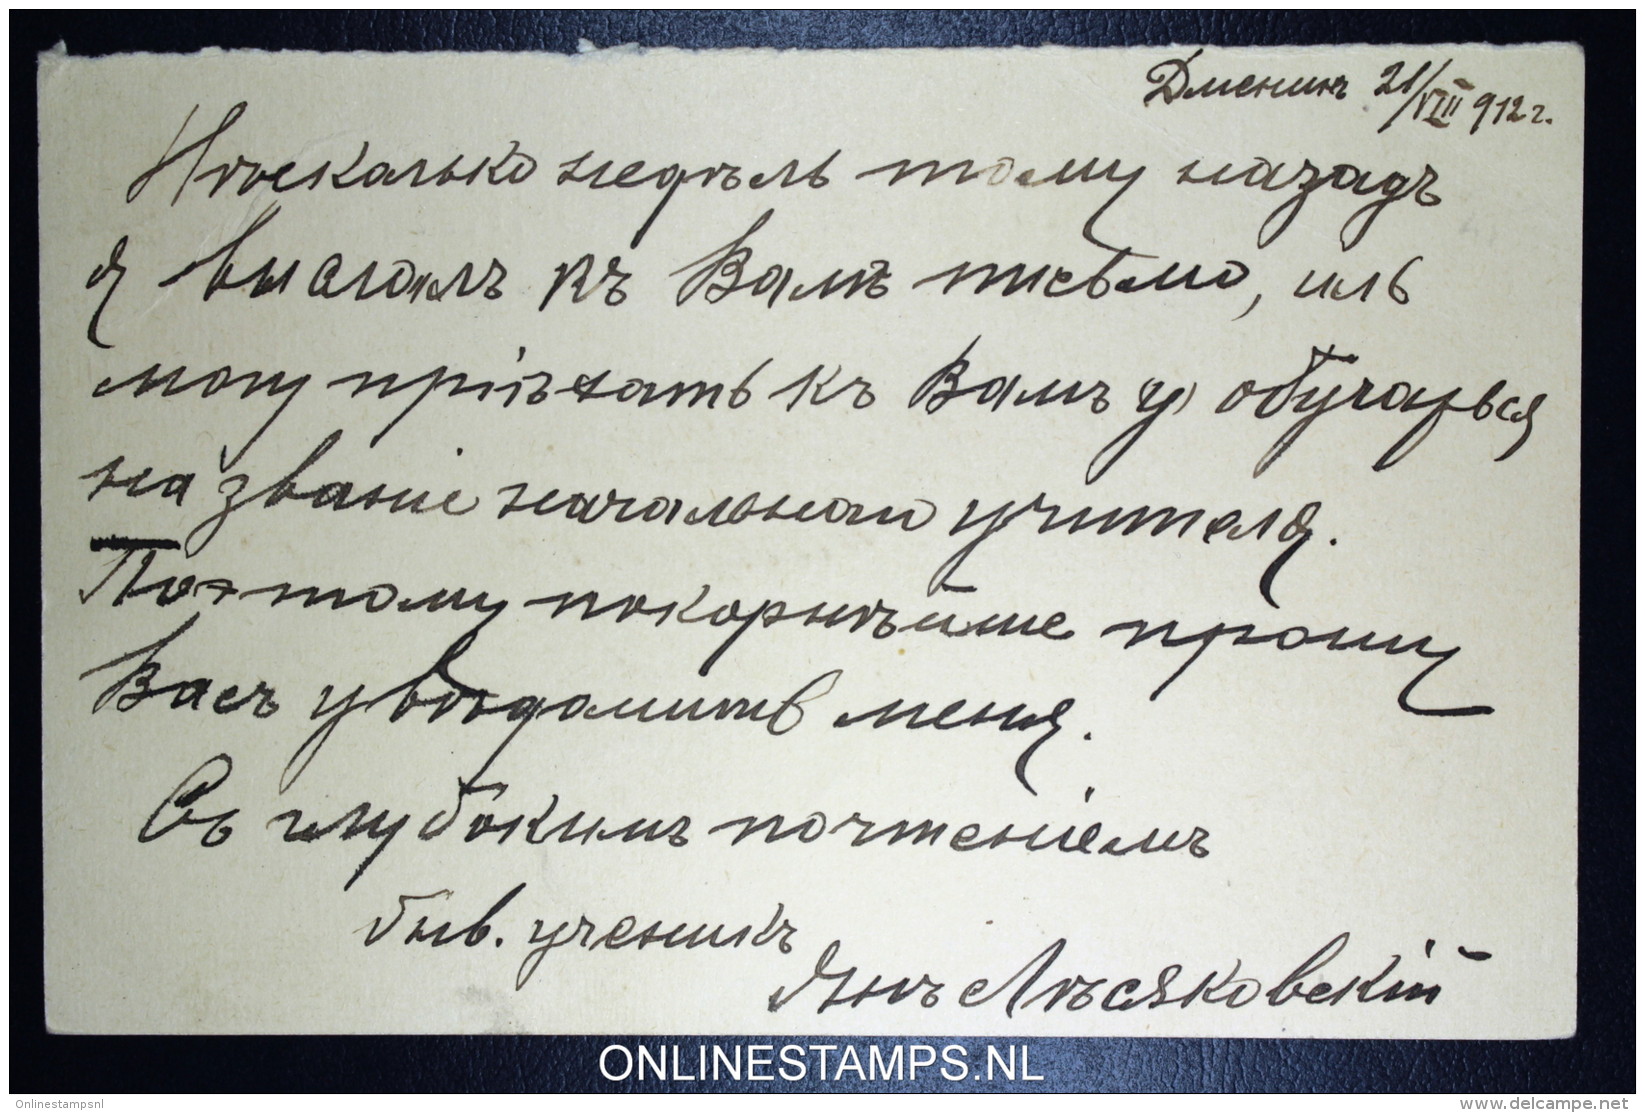 21/VIII 912 г.
Нѣсколько недѣль тому назадъ
я выслалъ къ Вамъ письмо, иль
могу пріѣхать къ Вамъ и обучаться
на званіе начальнаго учителя.
Поэтому покорнѣйше прошу
Васъ увѣдомить меня.
Съ глубокимъ почтеніемъ
быв. ученикъ
Янъ Лѣсяковскій
ONLINESTAMPS.NL
Onlinestampsnl
www.delcampe.net